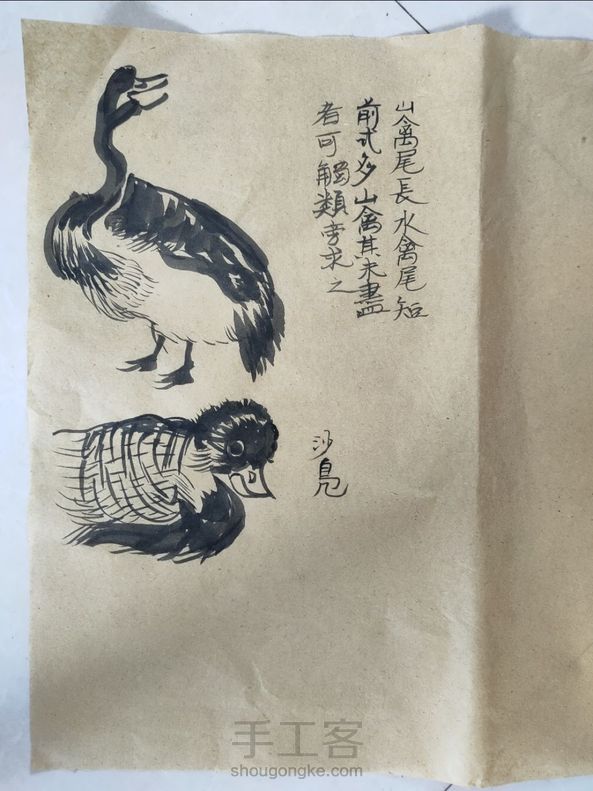 山禽尾長水禽尾短
前式多山禽其未盡
者可觸類旁求之
沙鳧
手工客
shougongke.com